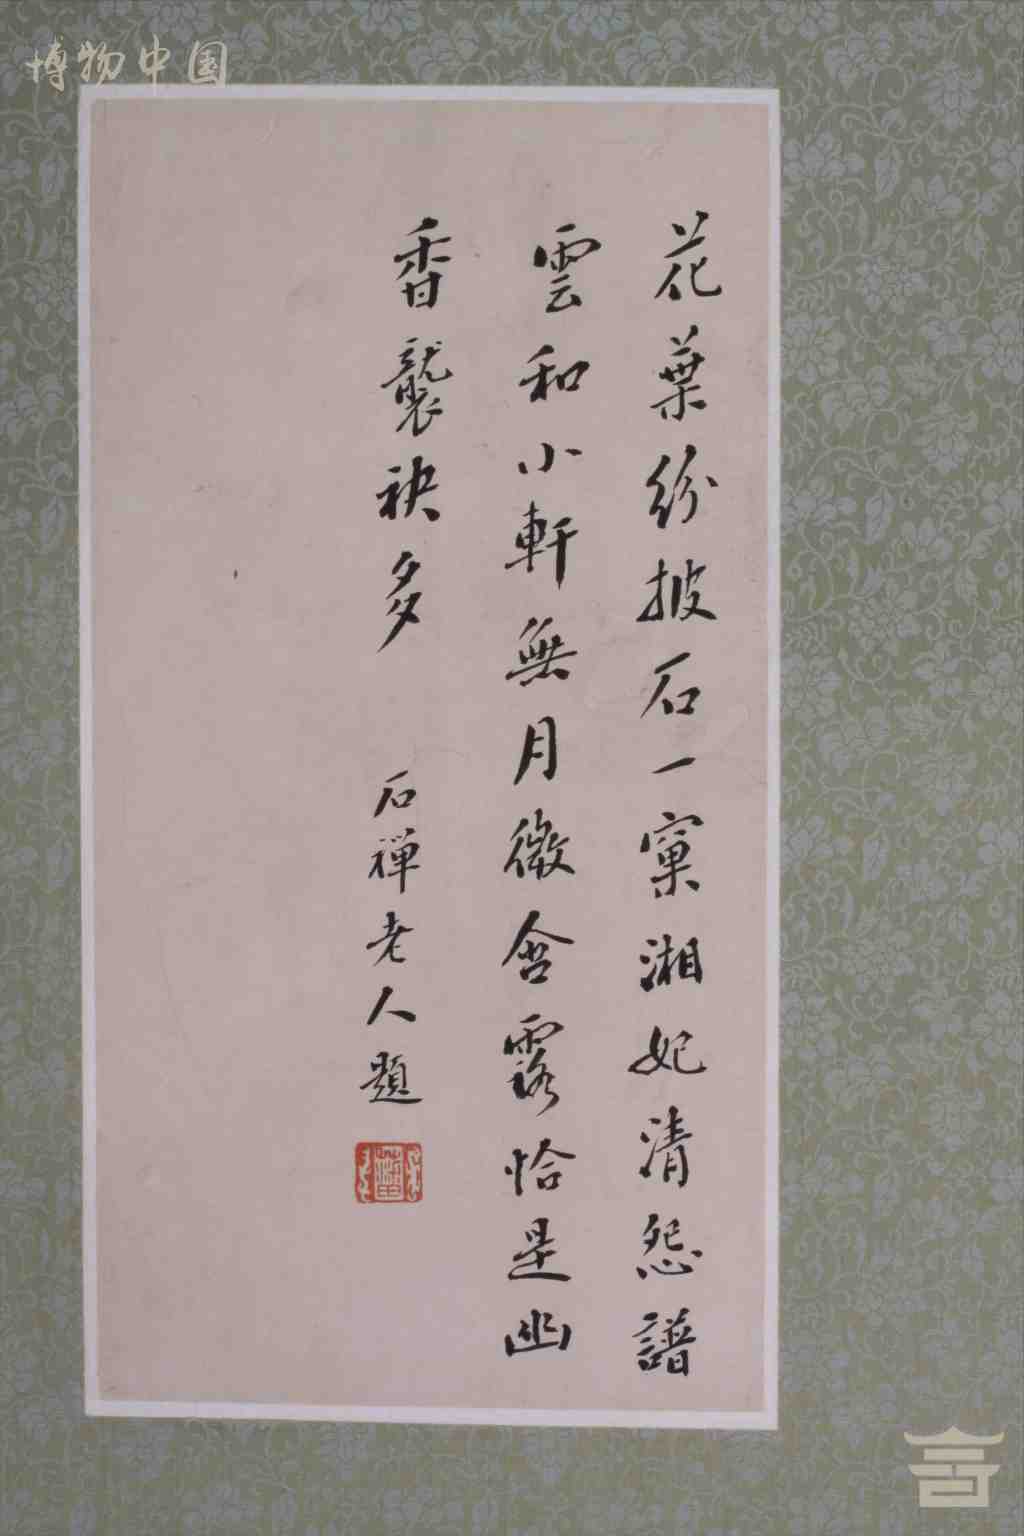 博物中国
花葉紛披石一窠湘妃清怨譜
雲和小軒無月微含露恰是幽
香襲袂多
石禪老人題